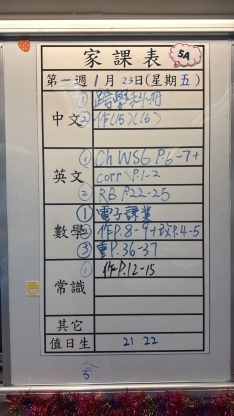 家課表
5A
第一週1月23日(星期五)
中文
① 跨學科冊
② 作(15)(16)
英文
① Ch WS6 P.6-7+
corr P.1-2
② RB P.22-25
數學
① 電子課業
② 作P.8-9+ P.4-5
③ P.36-37
常識
① 作P.12-15
其它
值日生
21 22